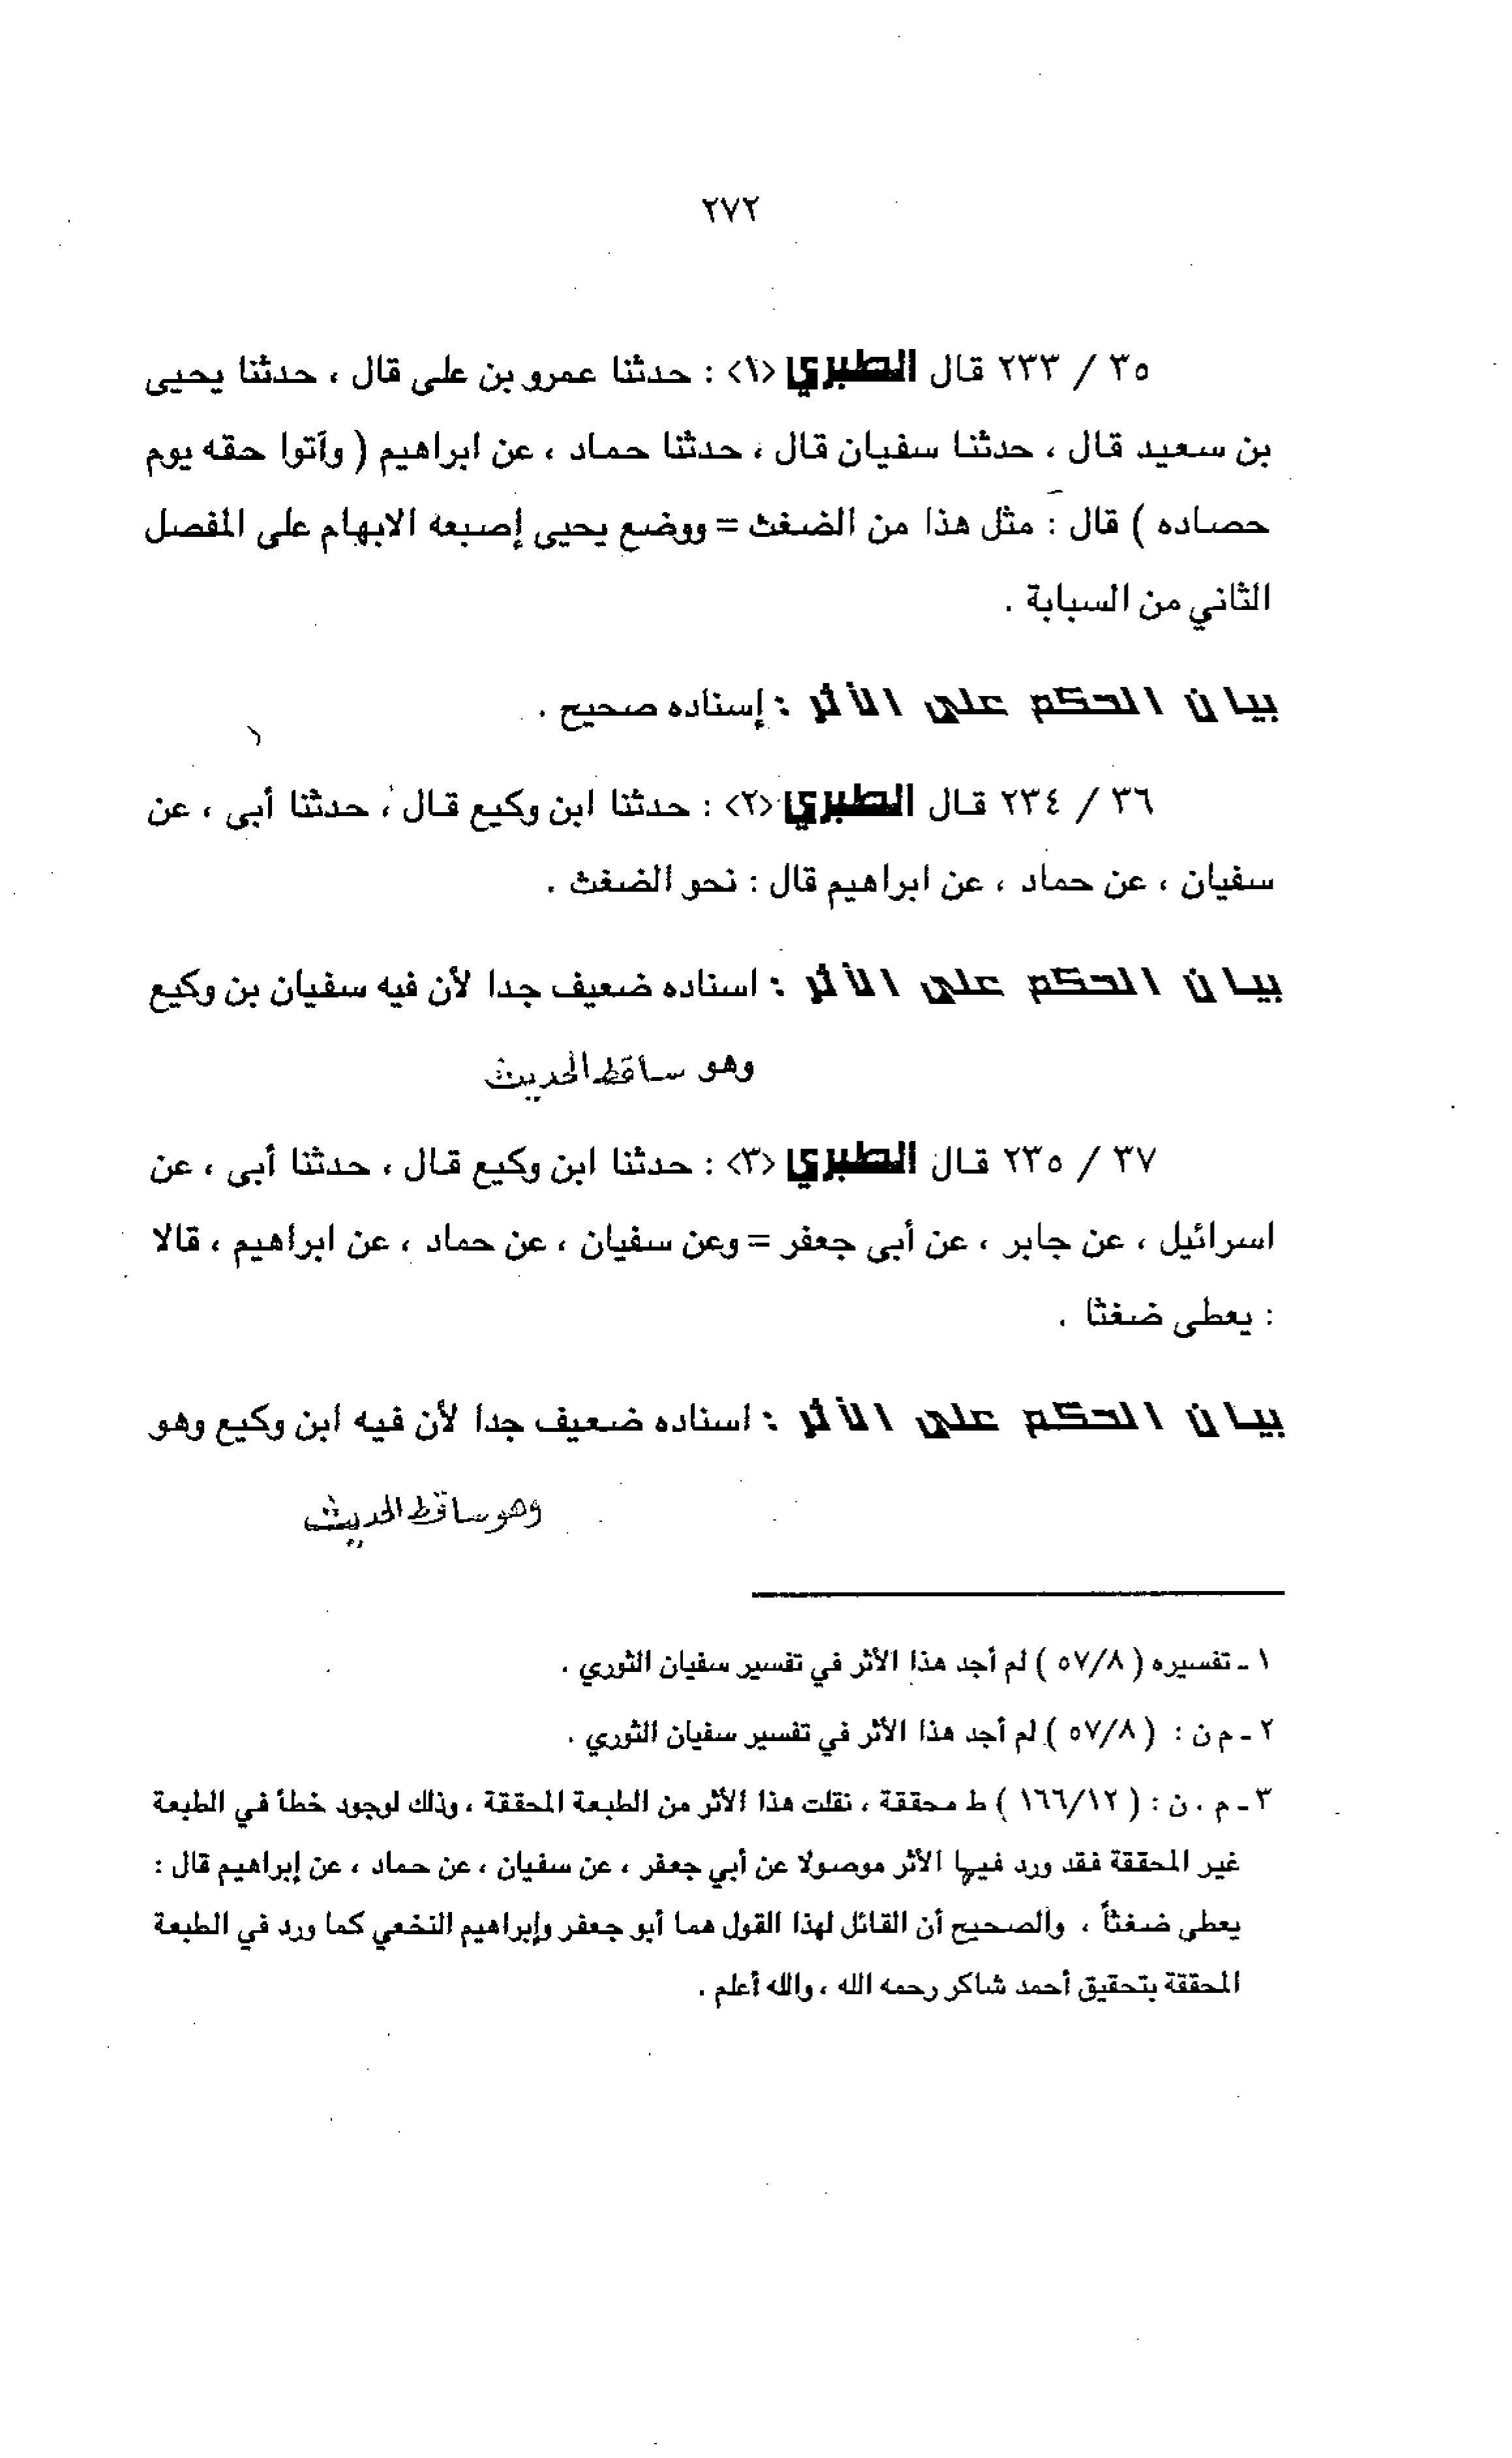 ٢٧٢
٣٥ / ٢٣٣ قال الطبري <١> : حدثنا عمرو بن على قال ، حدثنا يحيى
بن سعيد قال ، حدثنا سفيان قال ، حدثنا حماد ، عن ابراهيم ( وآتوا حقه يوم
حصاده ) قال : مثل هذا من الضغث = ووضع يحيى إصبعه الابهام على المفصل
الثاني من السبابة .
بيان الحكم على الأثر : إسناده صحيح .
٣٦ / ٢٣٤ قال الطبري <٢> : حدثنا ابن وكيع قال ، حدثنا أبى ، عن
سفيان ، عن حماد ، عن ابراهيم قال : نحو الضغث .
بيان الحكم على الأثر : اسناده ضعيف جدا لأن فيه سفيان بن وكيع
وهو ساقط الحديث
٣٧ / ٢٣٥ قال الطبري <٣> : حدثنا ابن وكيع قال ، حدثنا أبى ، عن
اسرائيل ، عن جابر ، عن أبى جعفر = وعن سفيان ، عن حماد ، عن ابراهيم ، قالا
: يعطى ضغثا .
بيان الحكم على الأثر : اسناده ضعيف جدا لأن فيه ابن وكيع وهو
وهو ساقط الحديث
١ ـ تفسيره ( ٥٧/٨ ) لم أجد هذا الأثر في تفسير سفيان الثوري .
٢ ـ م ن : ( ٥٧/٨ ) لم أجد هذا الأثر في تفسير سفيان الثوري .
٣ ـ م . ن : ( ١٦٦/١٢ ) ط محققة ، نقلت هذا الأثر من الطبعة المحققة ، وذلك لوجود خطأ في الطبعة
غير المحققة فقد ورد فيها الأثر موصولا عن أبي جعفر ، عن سفيان ، عن حماد ، عن إبراهيم قال :
يعطى ضغثاً ، والصحيح أن القائل لهذا القول هما أبو جعفر وإبراهيم النخعي كما ورد في الطبعة
المحققة بتحقيق أحمد شاكر رحمه الله ، والله أعلم .